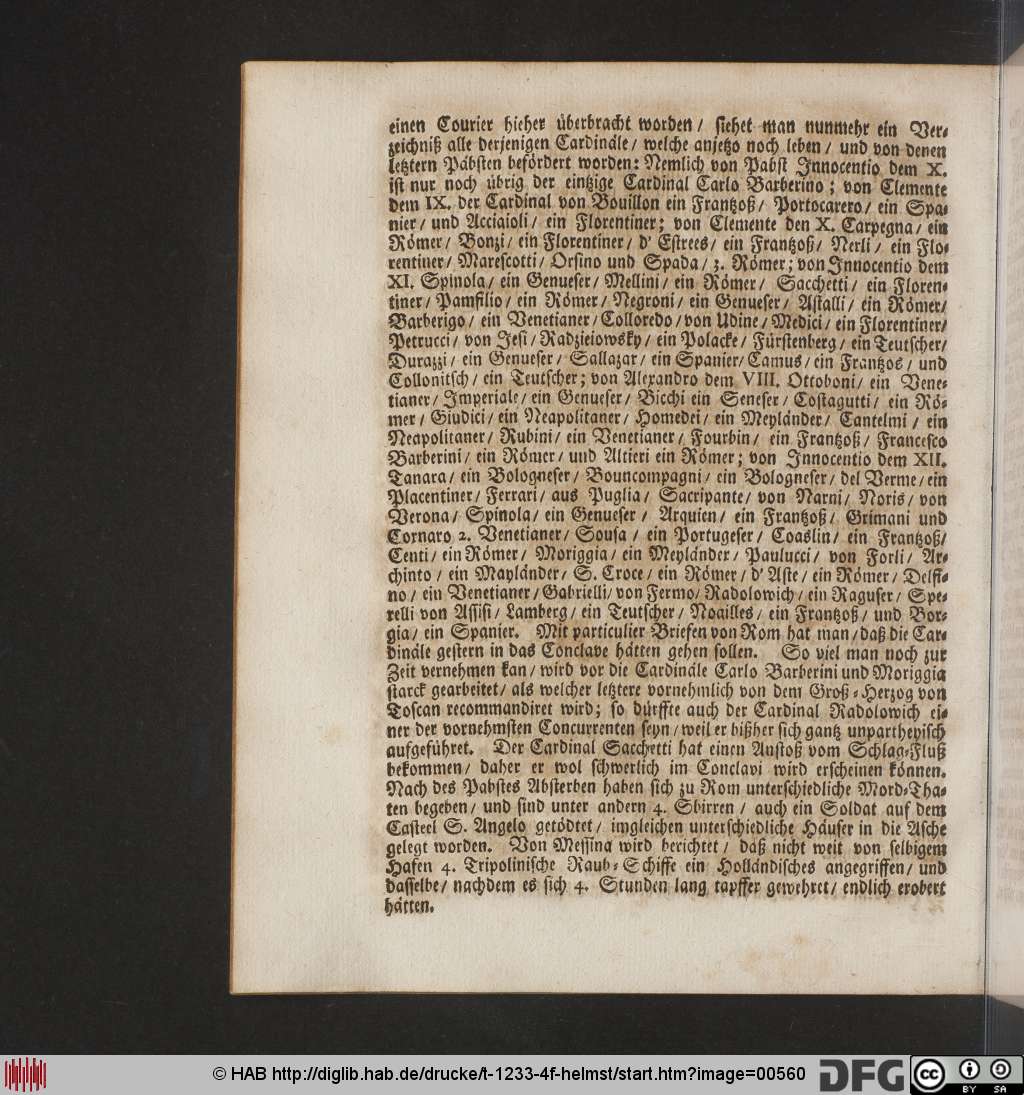 einen Courier hieher überbracht worden / siehet man nunmehr ein Ver-
zeichniß alle derjenigen Cardinäle / welche anjetzo noch leben / und von denen
letztern Päbsten befördert worden: Nemlich von Pabst Innocentio dem X.
ist nur noch übrig der eintzige Cardinal Carlo Barberino ; von Clemente
dem IX. der Cardinal von Bouillon ein Frantzoß / Portocarero / ein Spa-
nier / und Acciaioli / ein Florentiner ; von Clemente den X. Carpegna / ein
Römer / Bonzi / ein Florentiner / d' Estrees / ein Frantzoß / Nerli / ein Flo-
rentiner / Marescotti / Orsino und Spada / 3. Römer ; von Innocentio dem
XI. Spinola / ein Genueser / Mellini / ein Römer / Sacchetti / ein Floren-
tiner / Pamfilio / ein Römer / Negroni / ein Genueser / Astalli / ein Römer /
Barberigo / ein Venetianer / Colloredo / von Udine / Medici / ein Florentiner /
Petrucci / von Jesi / Radzieiowsky / ein Polacke / Fürstenberg / ein Teutscher /
Durazzi / ein Genueser / Sallazar / ein Spanier / Camus / ein Frantzos / und
Collonitsch / ein Teutscher ; von Alexandro dem VIII. Ottoboni / ein Vene-
tianer / Imperiale / ein Genueser / Bicchi ein Seneser / Costagutti / ein Rö-
mer / Giudici / ein Neapolitaner / Homedei / ein Meyländer / Cantelmi / ein
Neapolitaner / Rubini / ein Venetianer / Fourbin / ein Frantzoß / Francesco
Barberini / ein Römer / und Altieri ein Römer ; von Innocentio dem XII.
Tanara / ein Bologneser / Bouncompagni / ein Bologneser / del Verme / ein
Placentiner / Ferrari / aus Puglia / Sacripante / von Narni / Noris / von
Verona / Spinola / ein Genueser / Arquien / ein Frantzoß / Grimani und
Cornaro 2. Venetianer / Sousa / ein Portugeser / Coaslin / ein Frantzoß /
Centi / ein Römer / Moriggia / ein Meyländer / Paulucci / von Forli / Ar-
chinto / ein Mayländer / S. Croce / ein Römer / d' Aste / ein Römer / Delfi-
no / ein Venetianer / Gabrielli / von Fermo / Radolowich / ein Raguser / Spe-
relli von Assisi / Lamberg / ein Teutscher / Noailles / ein Frantzoß / und Bor-
gia / ein Spanier. Mit particulier Briefen von Rom hat man / daß die Car-
dinäle gestern in das Conclave hätten gehen sollen. So viel man noch zur
Zeit vernehmen kan / wird vor die Cardinäle Carlo Barberini und Moriggia
starck gearbeitet / als welcher letztere vornehmlich von dem Groß-Herzog von
Toscan recommandiret wird ; so dürffte auch der Cardinal Radolowich ei-
ner der vornehmsten Concurrenten seyn / weil er bißher sich gantz unpartheyisch
aufgeführet. Der Cardinal Sacchetti hat einen Anstoß vom Schlag-Fluß
bekommen / daher er wol schwerlich im Conclavi wird erscheinen können.
Nach des Pabstes Absterben haben sich zu Rom unterschiedliche Mord-Tha-
ten begeben / und sind unter andern 4. Sbirren / auch ein Soldat auf dem
Casteel S. Angelo getödtet / imgleichen unterschiedliche Häuser in die Asche
gelegt worden. Von Messina wird berichtet / daß nicht weit von selbigem
Hafen 4. Tripolinische Raub-Schiffe ein Holländisches angegriffen / und
dasselbe / nachdem es sich 4. Stunden lang tapffer gewehret / endlich erobert
hätten.
© HAB http://diglib.hab.de/drucke/t-1233-4f-helmst/start.htm?image=00560
DFG
cc BY SA